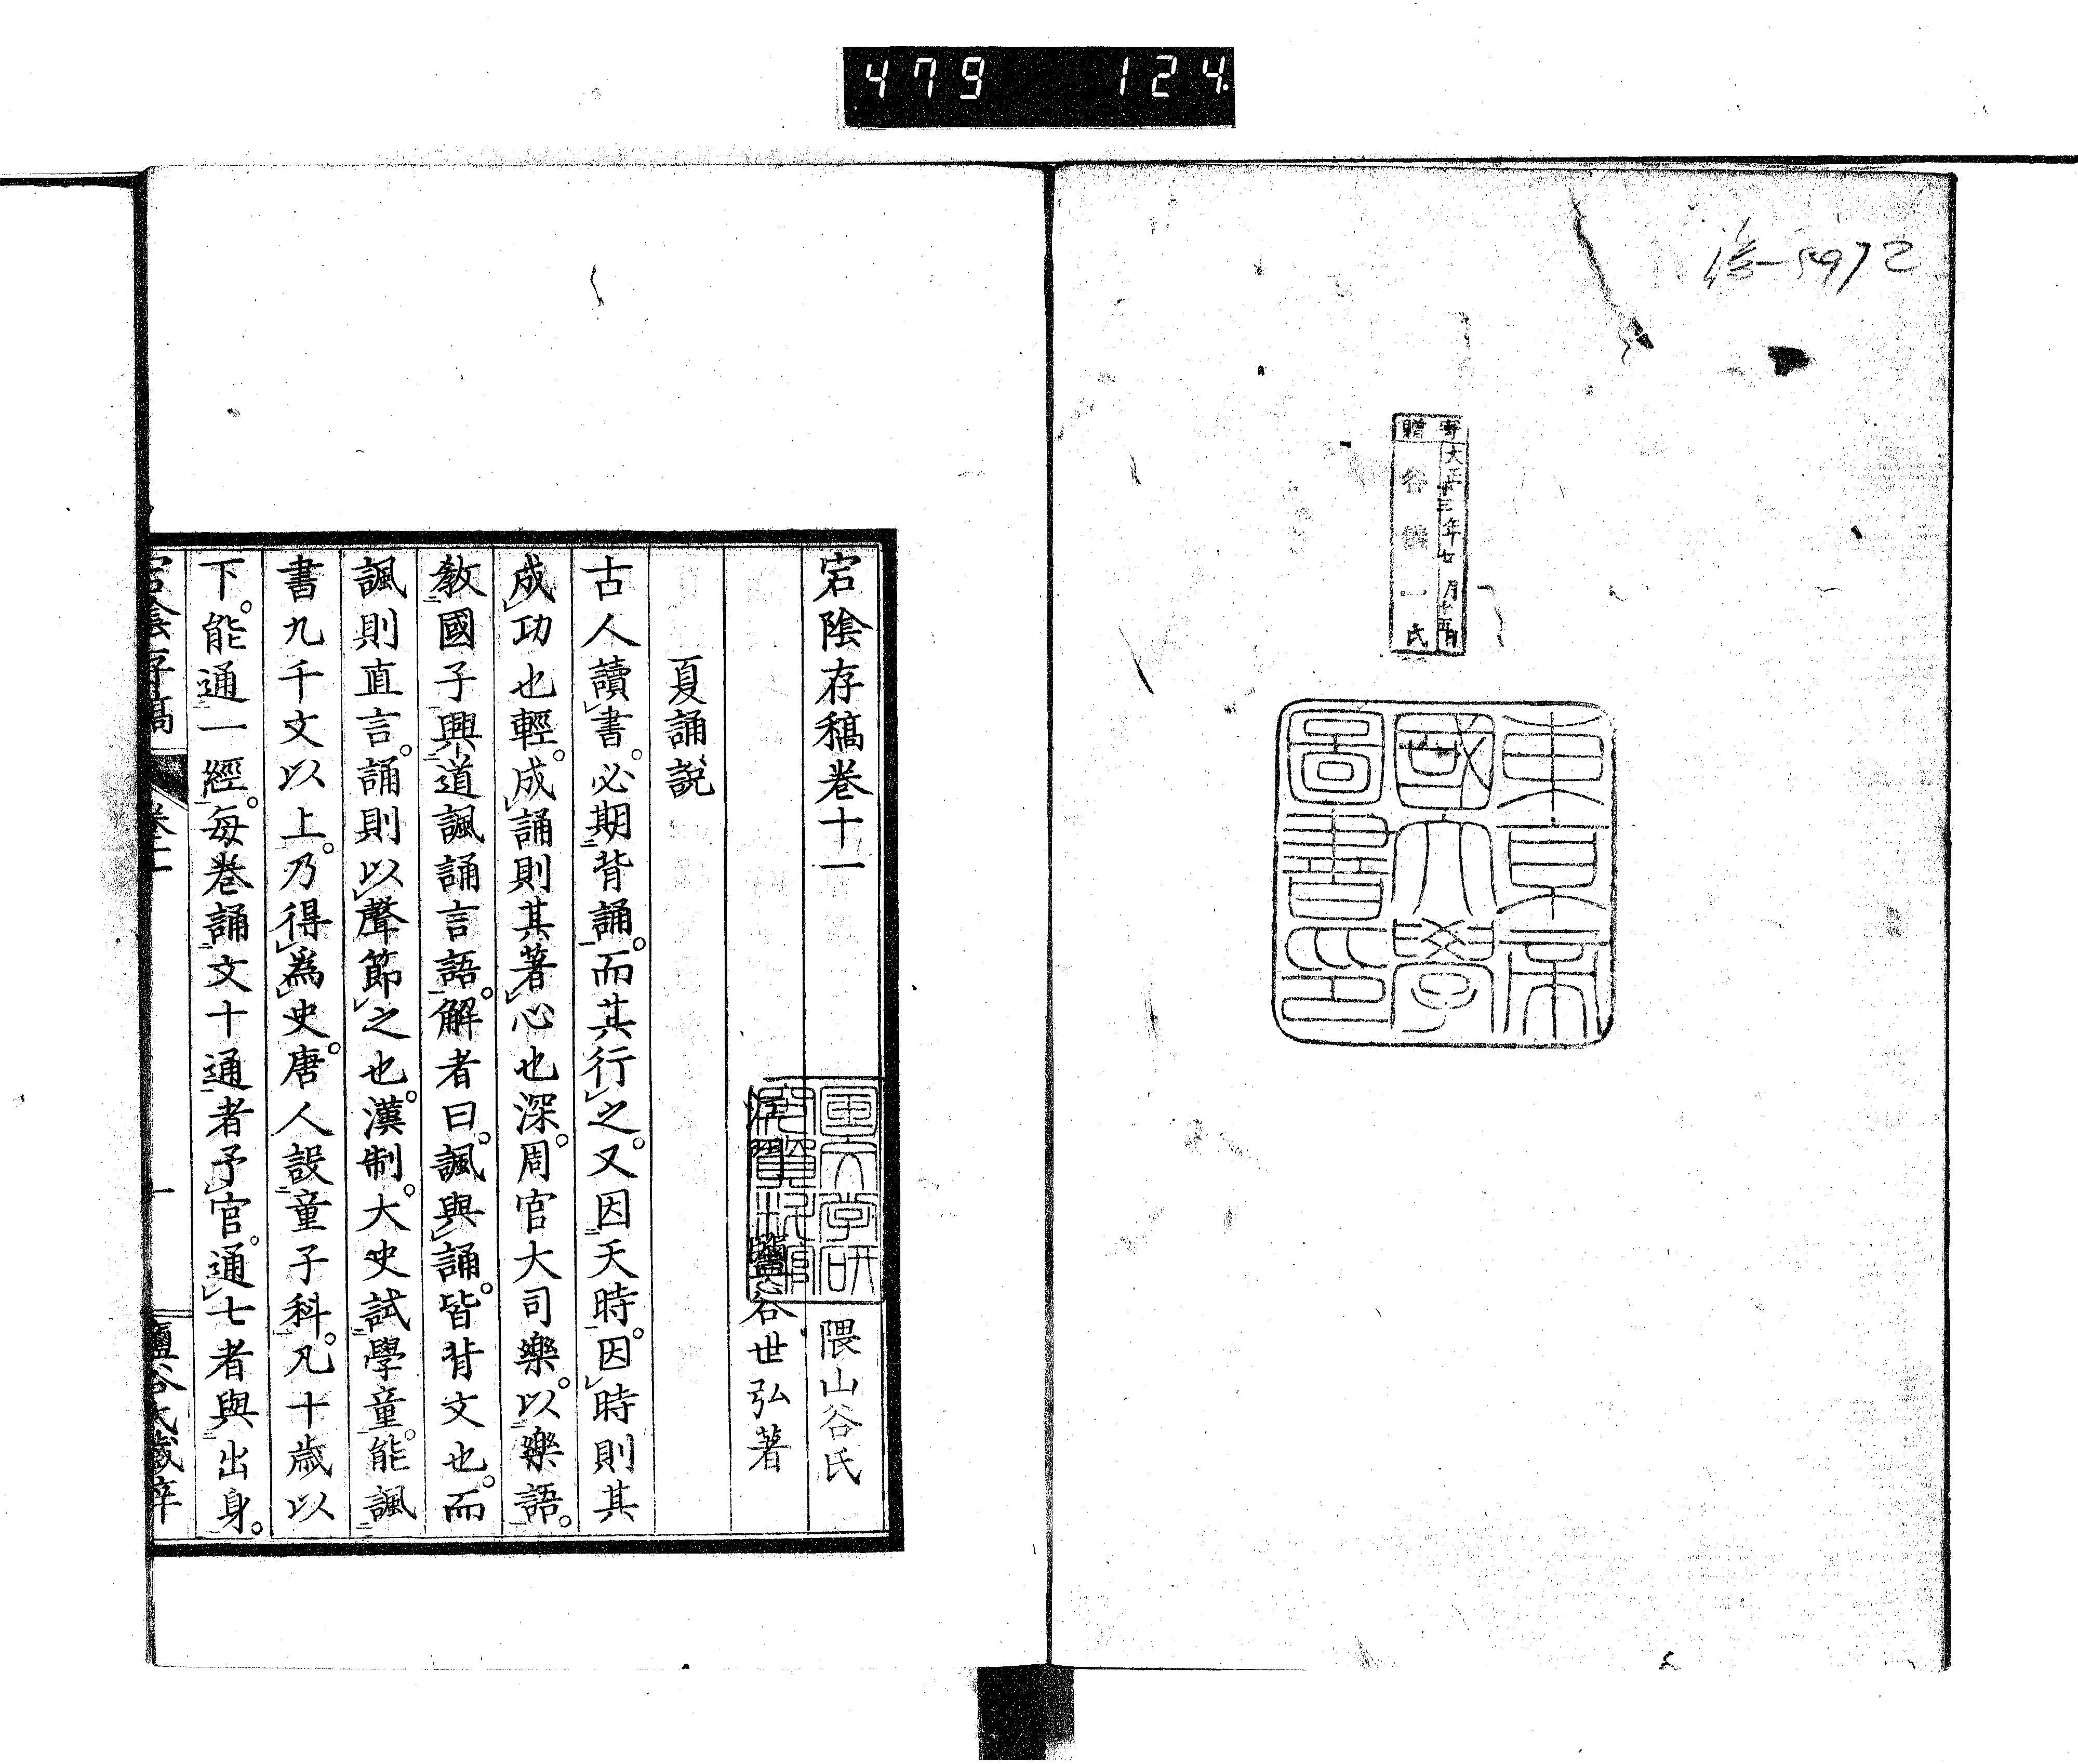 479 124
5972
寄贈
大正十三年七月十五日
谷 一氏
東京帝
國大學
圖書印
宕陰存稿卷十一
隈山谷氏
鹽谷世弘著
夏誦說
古人讀書。必期背誦。而其行之。又因天時。因時則其
成功也輕。成誦則其著心也深。周官大司樂。以樂語。
教國子興道諷誦言語。解者曰。諷與誦。皆背文也。而
諷則直言。誦則以聲節之也。漢制。大史試學童。能諷
書九千文以上。乃得爲史。唐人設童子科。凡十歲以
下。能通一經。每卷誦文十通者予官。通七者與出身。
宕陰存稿 卷十一 一 鹽谷氏藏梓